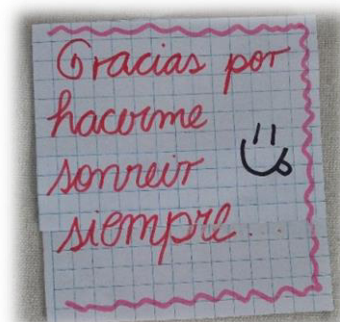 Gracias por
hacerme
sonreir
siempre...